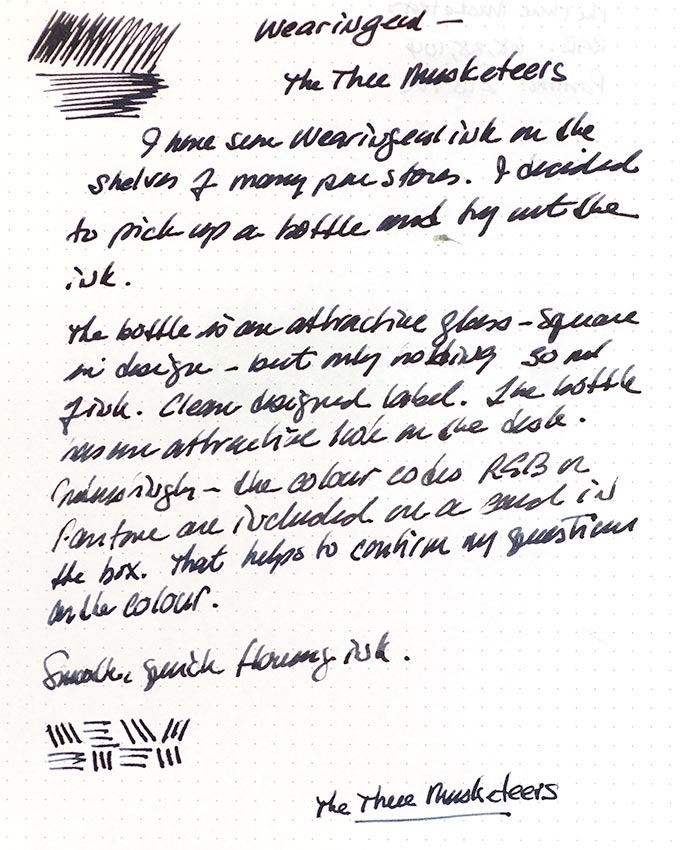 Wearingeul –
The Thee Musketeers
I have seen Wearingeul ink on the
shelves of many pen stores. I decided
to pick up a bottle and try out the
ink.
The bottle is an attractive glass – square
in design – but only holding 30 ml
of ink. Clean designed label. The bottle
has an attractive look on the desk.
the colour codes RGB or
Pantone are included on a card in
the box. That helps to confirm my questions
on the colour.
Smooth, quick flowing ink.
The Three Musketeers